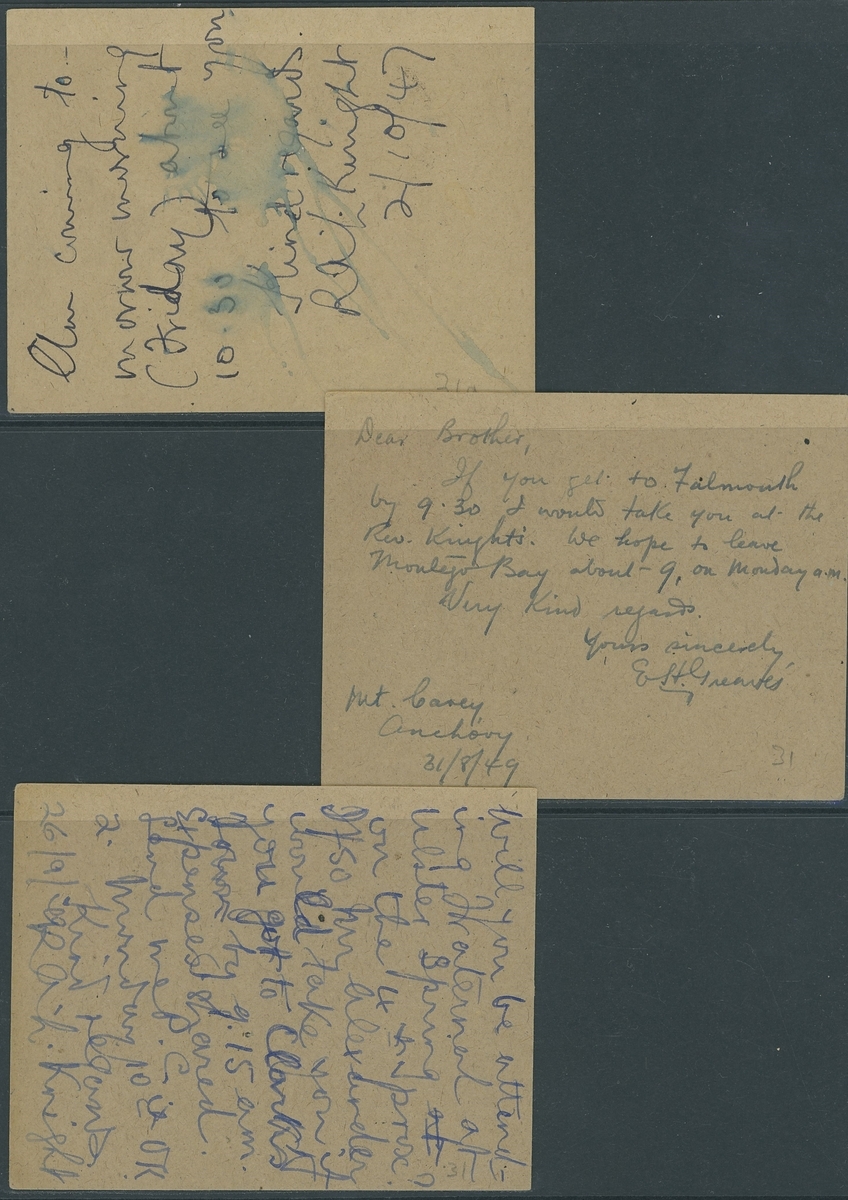 Am coming to-
morrow morning
(Friday) about
10.30 to see you
Kind regards.
R.A.L. Knight
2/10/47
31
Dear Brother,
If you get to Falmouth
by 9.30 I would take you at the
Rev. Knight's. We hope to leave
Montego Bay about 9, on Monday a.m.
Very Kind regards.
Yours sincerely
E.H. Greaves
Mt. Carey
Anchovy
31/8/49
31
Will you be attend-
ing Fraternal at
Ulster Spring
on the 4th prox?
If so Mr Alexander
would take you if
you got to Clarks
Town by 9.15 am.
Expenses shared.
Send me P.C. if OK
2. Monday 10th OK
Kind regards
26/9/ R.A.L. Knight
31